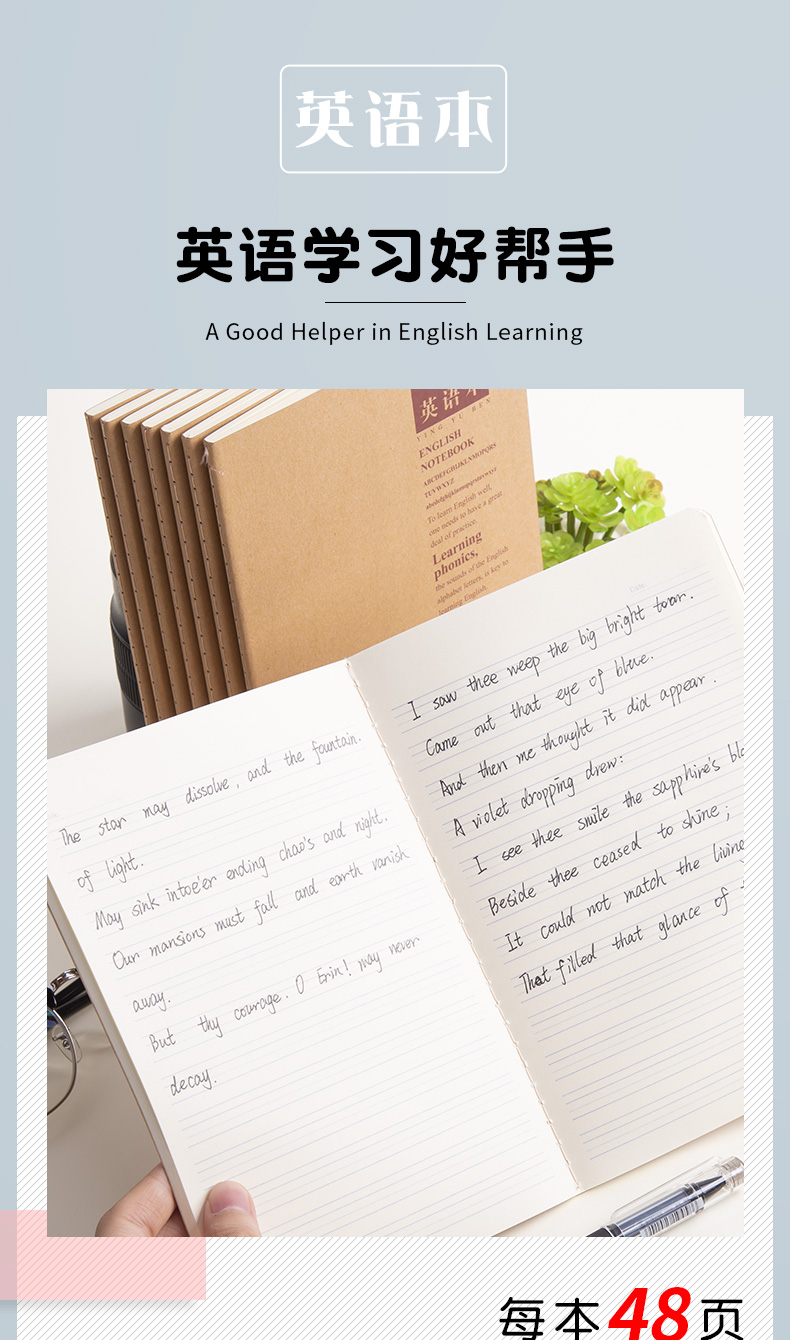 英语本
英语学习好帮手
A Good Helper in English Learning
英语本
YING YU BEN
ENGLISH
NOTEBOOK
ABCDEFGHIJKLMNOPQRS
TUVWXYZ
abcdefghijklmnopqrstuvwxyz
To learn English well,
one needs to have a great
deal of practice.
Learning
phonics,
the sounds of the English
alphabet letters, is key to
learning English.
The star may dissolve, and the fountain.
of light.
May sink intoe'er ending chao's and night.
Our mansions must fall and earth vanish
away.
But thy courage. O Erin! may never
decay.
I saw thee weep the big bright
Came out that eye of blue.
And then me thought it did appear.
A violet dropping drew:
I see thee smile the sapphire's
Beside thee ceased to shine;
It could not match the living
That filled that glance of
每本48页